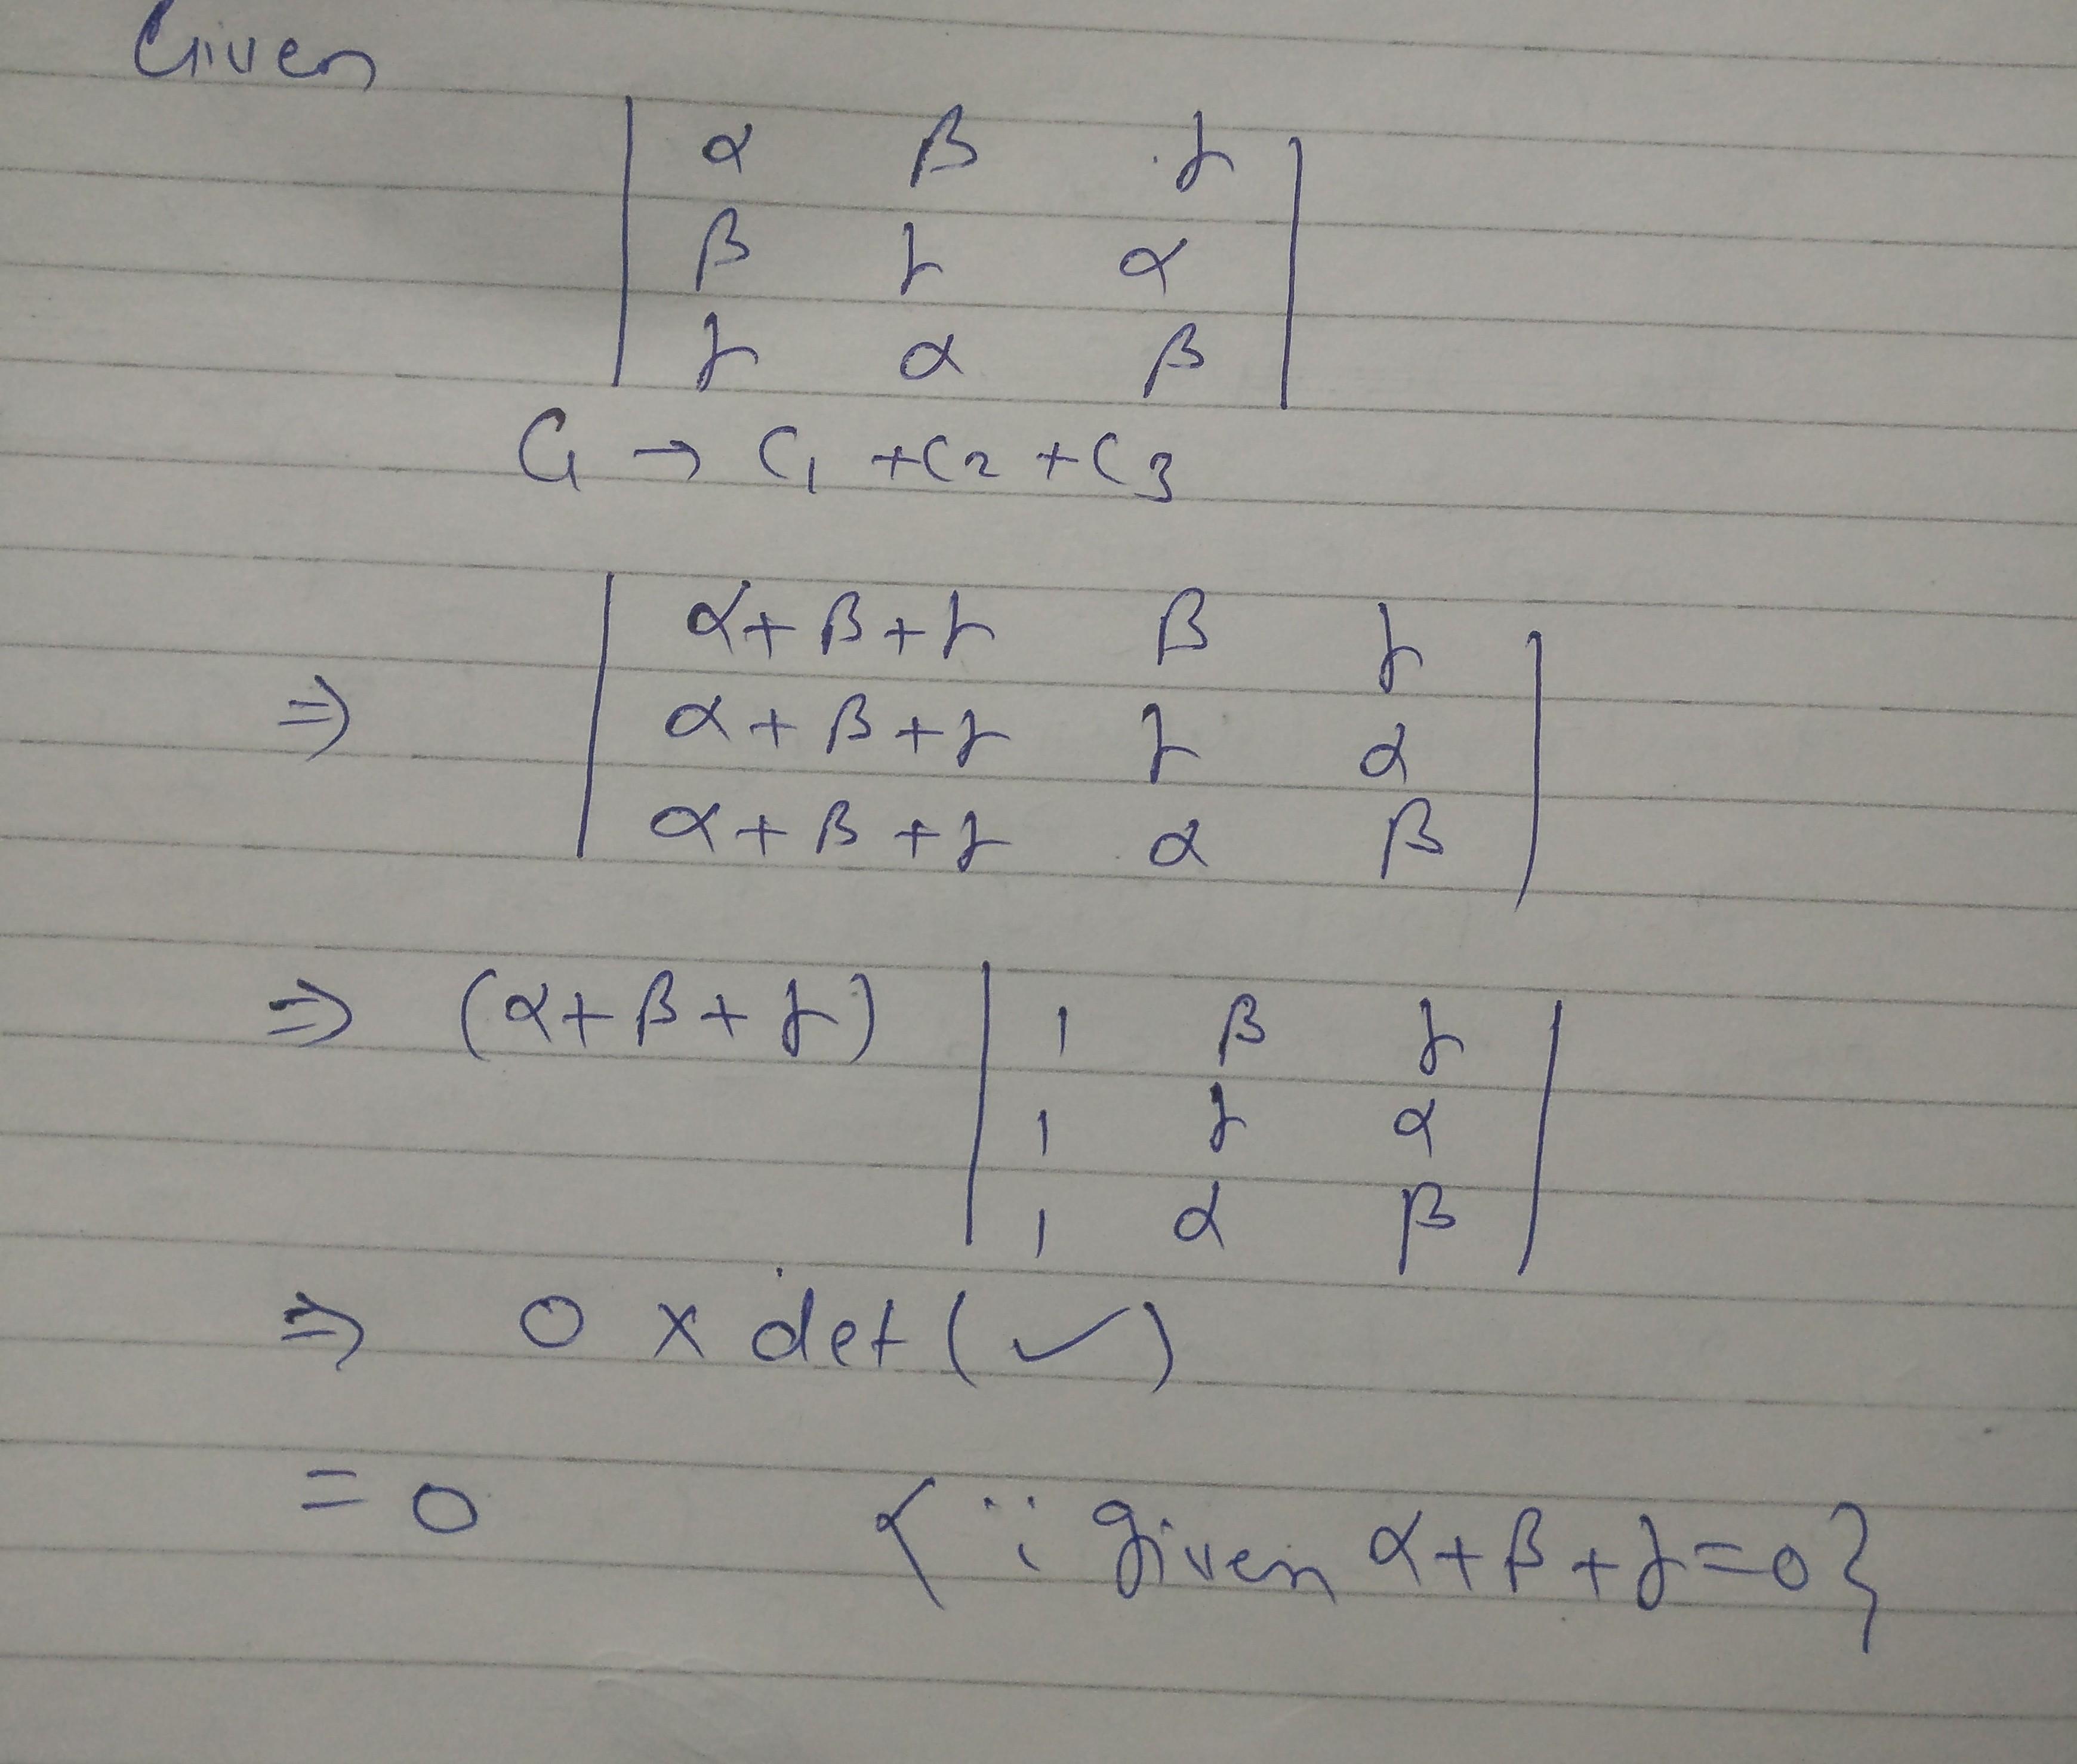 Given
| α β γ |
| β γ α |
| γ α β |
C1 → C1 + C2 + C3
⇒ | α+β+γ β γ |
| α+β+γ γ α |
| α+β+γ α β |
⇒ (α+β+γ) | 1 β γ |
| 1 γ α |
| 1 α β |
⇒ 0 × det (✓)
= 0 {∵ given α+β+γ=0}